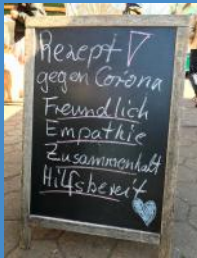 Rezept
gegen Corona
Freundlich
Empathie
Zusammenhalt
Hilfsbereit